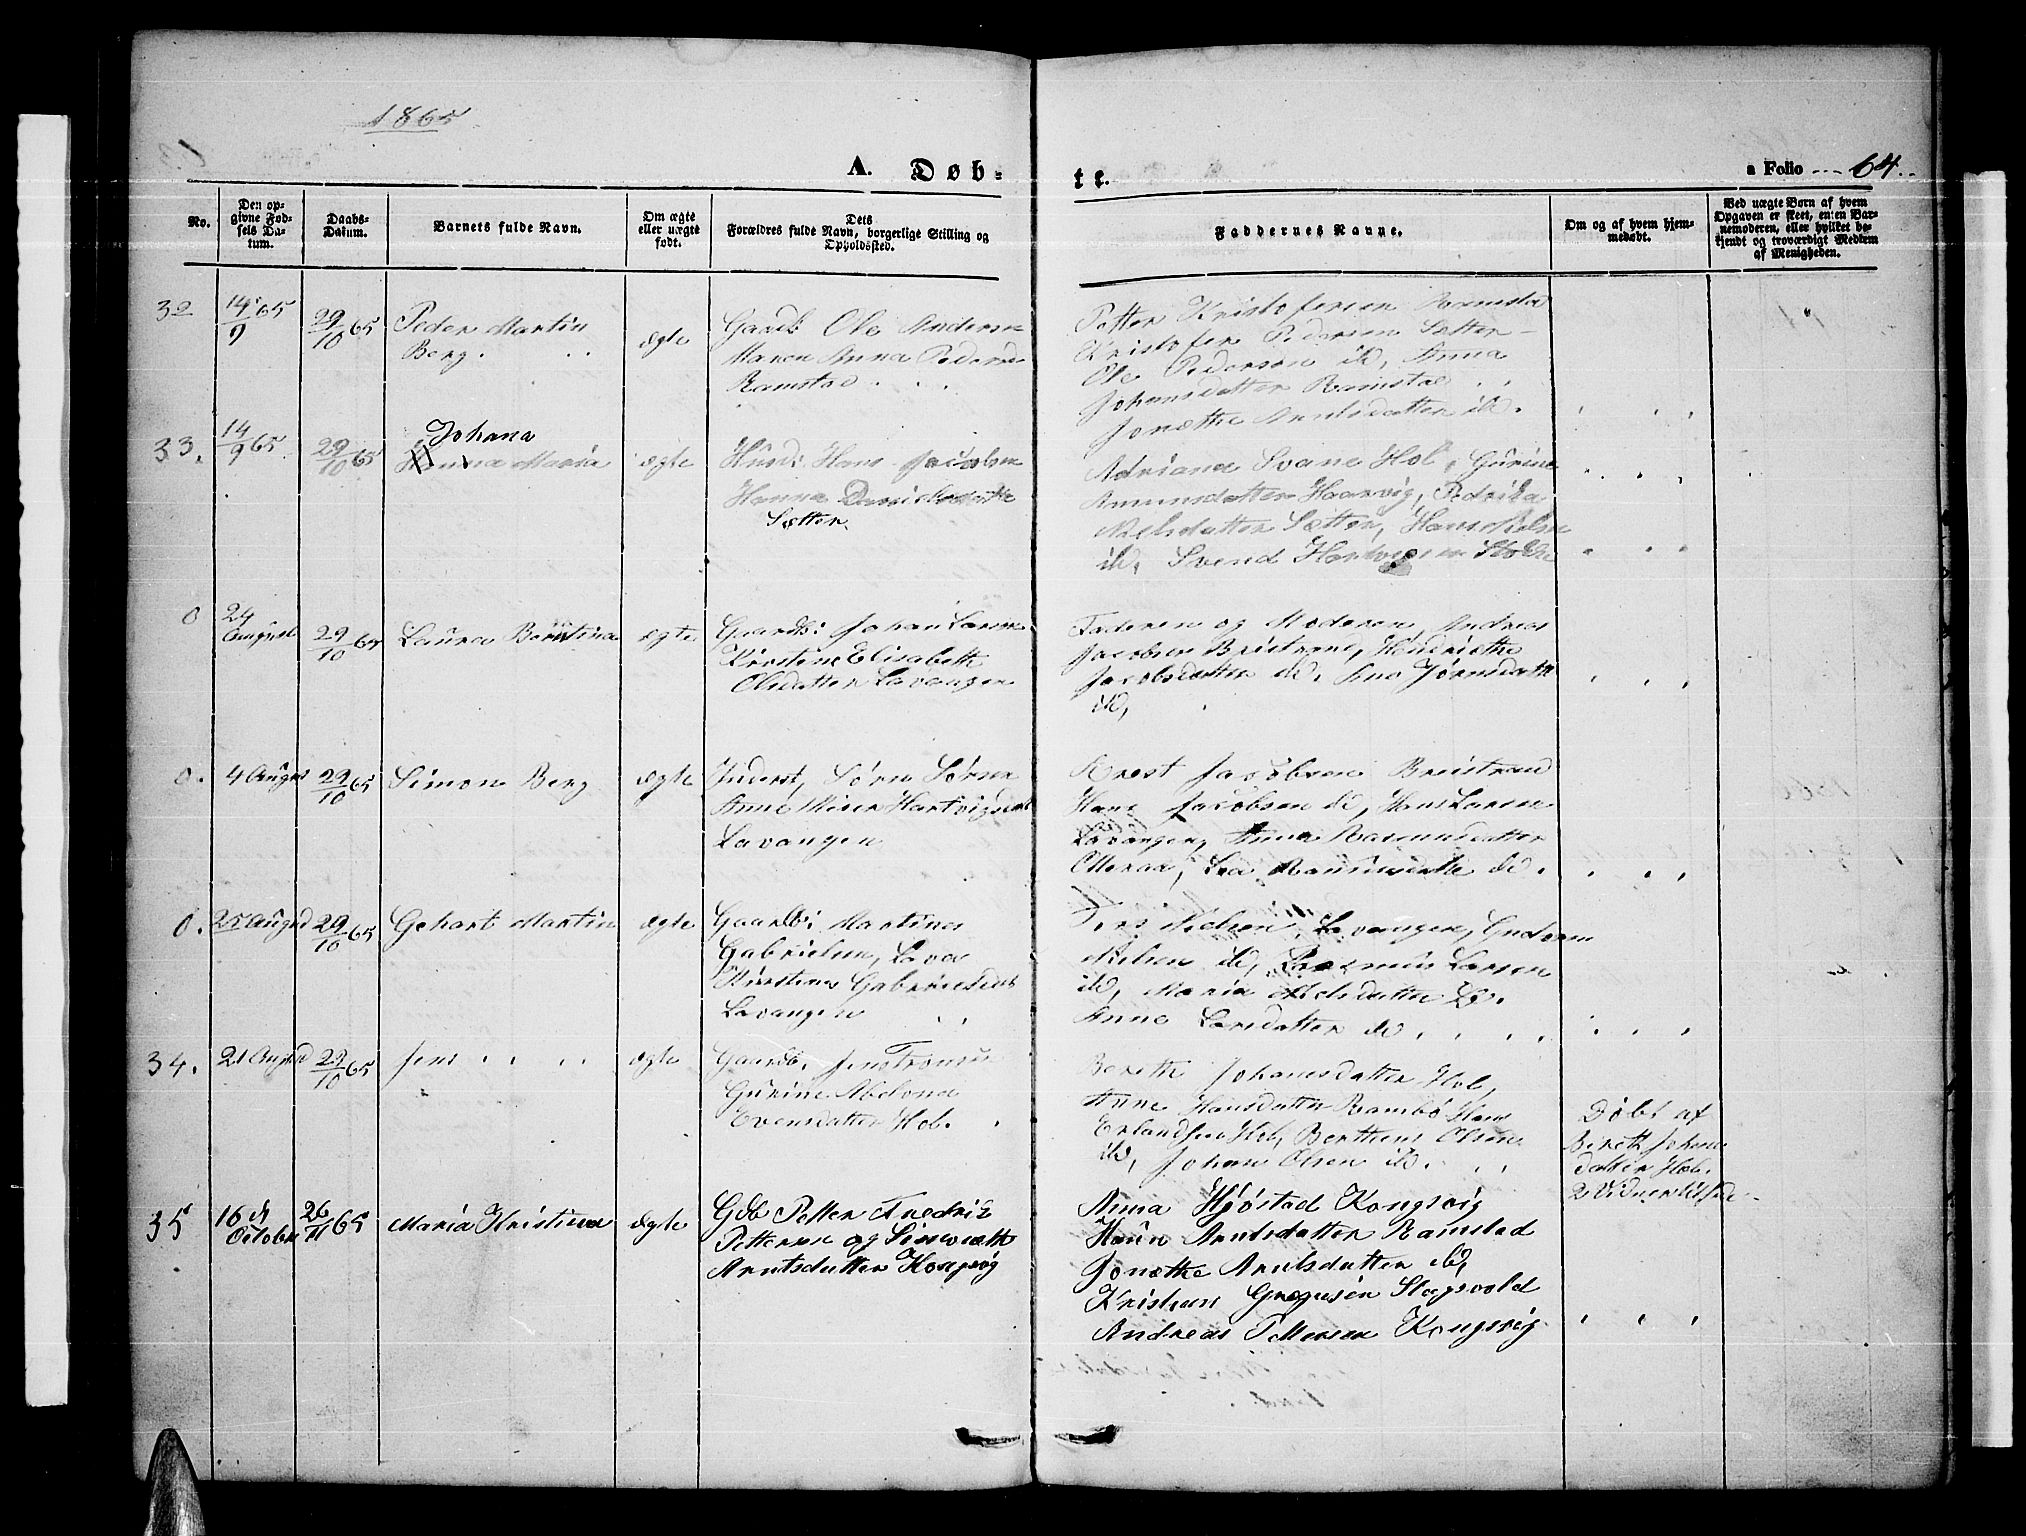 1865
A. Døb-
te.
a Folio 64.
No.
Den op-
givne Fød-
sels Da-
tum.
Daabs-
Datum.
Barnets fulde Navn.
Om ægte
eller uægte
født.
Dets
Forældres fulde Navn, borgerlige Stilling og
Opholdssted.
Faddernes Navne.
Om og af hvem hjem-
medøbt.
Ved uægte Børn af hvem
Opgaven er skeet, enten Bar-
nemoderen, eller hvilket be-
kjendt og troværdigt Medlem
af Menigheden.
32
14/9 65
29/10 65
Peder Martin
Berg.
ægte
Gaardb Ole Andersen
Maren Anna
Ramstad
Petter Kristofersen Ramstad
Kristofer Pedersen Sætter
Ole Pedersen ib, Anna
Johansdatter Ramstad
Jonethe Arntsdatter ib.
33.
14/9 65
29/10 65
Johana
Hanna Maria
ægte
Husb: Hans Jacobsen
Hanna
Sætter
Adriana Svane Hol, Gurine
Amunsdatter Haarvig, Pedrika
Nielsdatter Sætter, Hans Nielsen
ib, Svend
0
24
August
29/10 65
Laura Berntina
ægte
Gaardb: Johan Larsen
Kirstine Elisabeth
Olsdatter Lavangen
Faderen og Moderen, Andreas
Jacobsen Breistrand, Hendriethe
Jacobsdatter ib, Ane Jørnsdatter
ib,
0.
4 August
29/10 65
Simon Berg
ægte
Inderst, Sørn Sørsen
Anne Hartvigsdat
Lavangen
Arest Jacobsen Breistrand
Hans Jacobsen ib, Hans Larsen
Lavangen, Anna Rasmusdatter
Otteraa, Lea ib.
0.
25 August
29/10 65
Gehart Martin
ægte
Gaardb: Martines
Gabrielsen, Lava
Kirstine Gabrielsdat
Lavangen
Nielsen Lavangen,
Nielsen ib, Rasmus Larsen
ib, Maria Nielsdatter ib.
Anne Larsdatter ib
34.
21 August
29/10 65
Jens
ægte
Gaardb. Jens
Gurine Abelona
Evensdatter Hol.
Bereth Johansdatter Hol,
Anne Hansdatter Rambø Hans
Erlandsen Hol, Berthens Olsen
ib, Johan Olsen ib.
Døbt af
Bereth Johans
datter Hol.
2 Vidner tilstede
35
16 d
October
26/11 65
Maria Kristina
ægte
Gdb Petter Fredrik
Pettersen og
Arntsdatter Kongsvig
Anna Hjøstad Kongsvig
Arntsdatter Ramstad
Jonethe Arntsdatter ib,
Kristian Gregusen Slagsvold
Andreas Pettersen Kongsvig